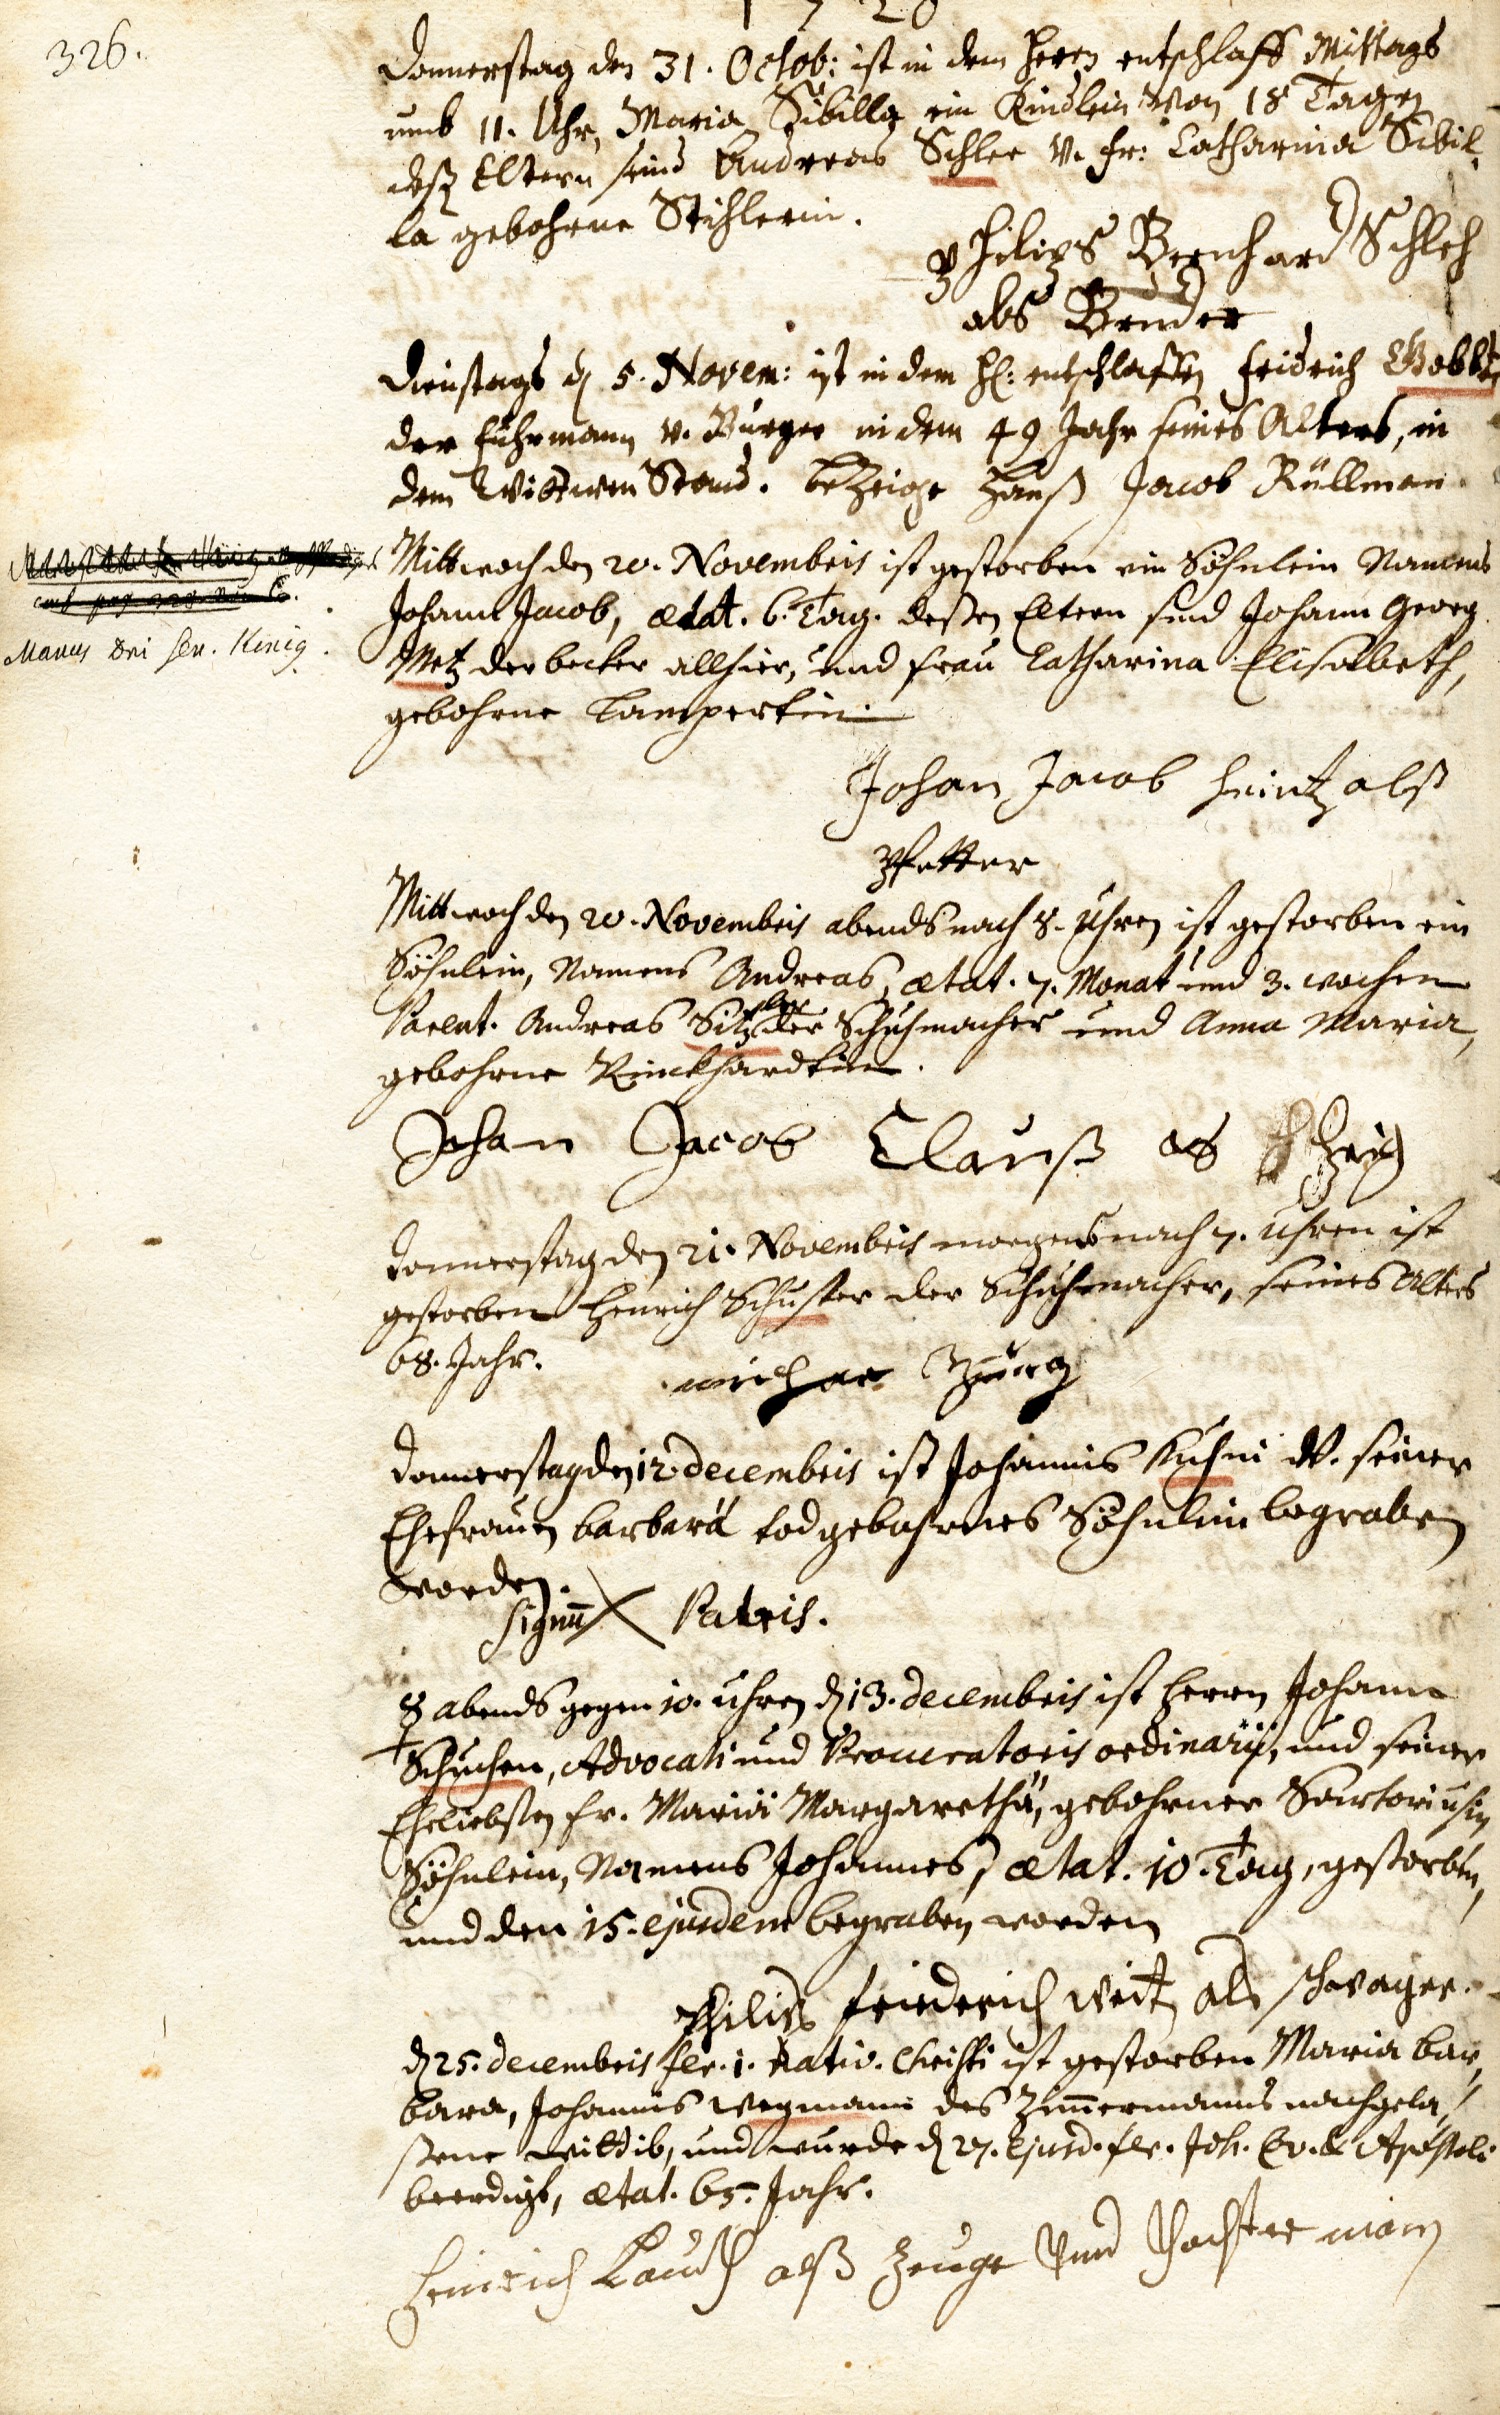 326.
1720
Donnerstag den 31. Octob: ist in dem Herrn entschlaff Mittags
umb 11. Uhr, Maria Sibilla ein Kindlein von 18 Tagen
deß Eltern seind Andreas Schlee v. Fr: Catharina Sibil-
la gebohrne Stihlerin.
Philips Bernhard Schleh
als Bruder
Dienstags d 5. Novem: ist in dem H: entschlaffen Fridrich
der Fuhrmann v. Burger in dem 49 Jahr seines Alters, in
dem Wittwen Stand. bezeige Hanß Jacob Rüllman
Manus Dni Sen. König.
Mittwoch den 20. Novembris ist gestorben ein Söhnlein Namens
Johann Jacob, ætat. 6. Tag. deßen Eltern sind Johann Georg
Metz der becker allhier, und Frau Catharina Elisabeth,
gebohrne Lampertin.
Johan Jacob Heintz alß
Pfetter
Mittwoch den 20. Novembris abends nach 8. Uhren ist gestorben ein
Söhnlein, Namens Andreas, ætat. 7. Monat und 3. wochen
Parent. Andreas der Schuhmacher und Anna Maria,
gebohrne Rinckhardtin.
Johan Jacob Clauß als Zeig
Donnerstag den 21. Novembris morgens nach 7. Uhren ist
gestorben Henrich Schuster der Schuhmacher, seines Alters
68. Jahr.
Donnerstag den 12 decembris ist Johannis Kuhni v. seiner
Ehefrauen barbarä todgebohrnes Söhnlein begraben
worden.
signū X Patris.
abends gegen 10. Uhren d 13. decembris ist Herrn Johann
Schuchen, Advocati und Procuratoris ordinarij, und seiner
Eheliebsten Fr. Mariä Margarethä, gebohrner Sartoriusin
Söhnlein, Namens Johannes, ætat. 10. Tag, gestorben,
und den 15. ejusdem begraben worden
Philips Friederich Veit als schwager.
d 25. decembris fer. 1. Nativ. Christi ist gestorben Maria bar-
bara, Johannis Wegmann des Zimmermanns nachgela-
ßene wittib, und wurde d 27. Ejusd. fer. Joh. Ev. & Apostoli
beerdigt, ætat. 65. Jahr.
Heinrich Lauth alß Zeuge und Dochter man